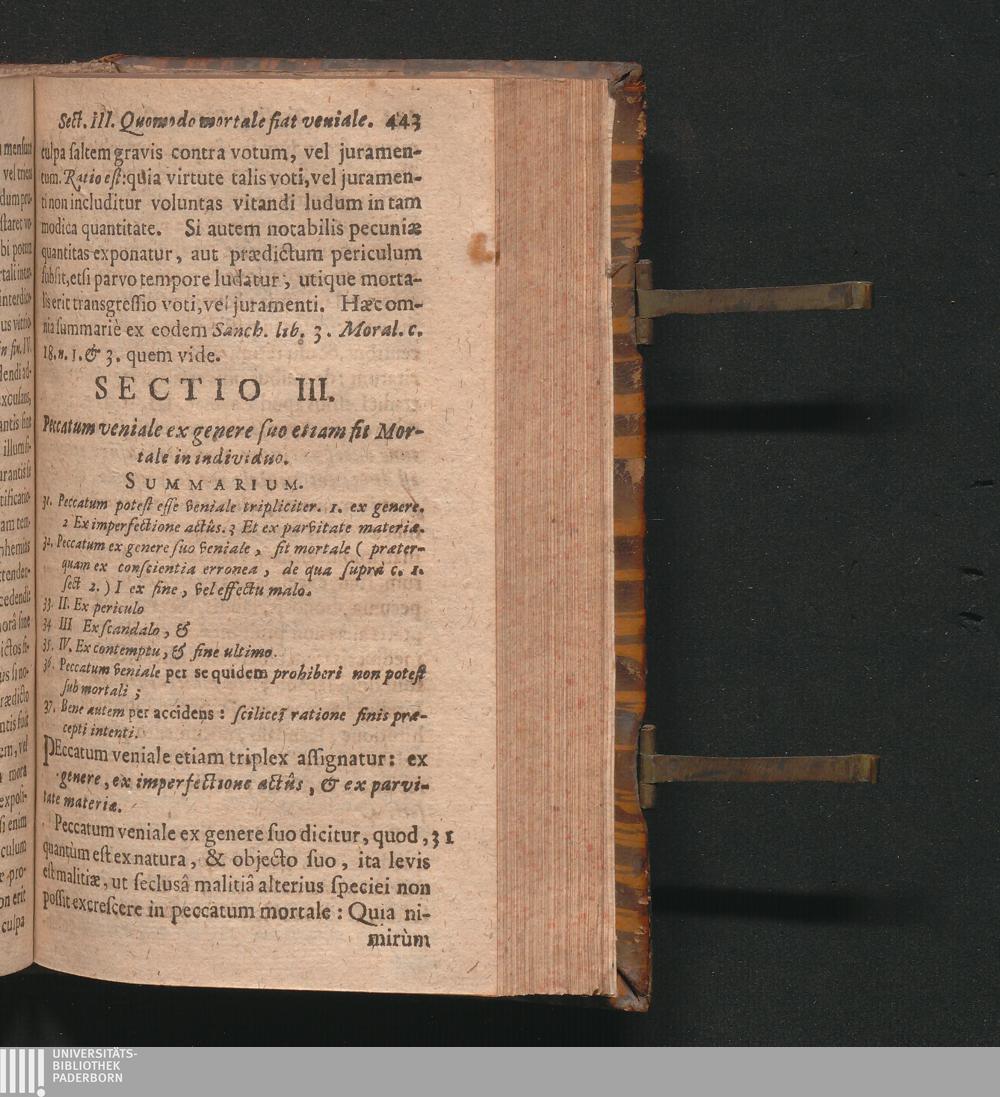 Sect. III. Quomodo mortale fiat veniale. 443
culpa ſaltem gravis contra votum, vel juramen-
tum. Ratio eſt: quia virtute talis voti, vel juramen-
ti non includitur voluntas vitandi ludum in tam
modica quantitate. Si autem notabilis pecuniæ
quantitas exponatur, aut prædictum periculum
ſubſit, etſi parvo tempore ludatur, utique morta-
lis erit transgreſſio voti, vel juramenti. Hæc om-
nia ſummariè ex eodem Sanch. lib. 3. Moral. c.
18. n. 1. & 3. quem vide.
SECTIO III.
Peccatum veniale ex genere ſuo etiam fit Mor-
tale in individuo.
SUMMARIUM.
31. Peccatum poteſt eſſe veniale tripliciter. 1. ex genere.
2 Ex imperfectione actûs. 3 Et ex parvitate materiæ.
32. Peccatum ex genere ſuo veniale, fit mortale ( præter-
quam ex conſcientia erronea, de qua ſuprà c. 1.
ſect 2. ) I ex fine, vel effectu malo.
33. II. Ex periculo
34 III Ex ſcandalo, &
35. IV. Ex contemptu, & fine ultimo.
36. Peccatum veniale per se quidem prohiberi non poteſt
ſub mortali ;
37. Bene autem per accidens : ſcilicet ratione finis præ-
cepti intenti.
PEccatum veniale etiam triplex aſſignatur: ex
genere, ex imperfectione actûs, & ex parvi-
tate materiæ.
Peccatum veniale ex genere ſuo dicitur, quod, 31
quantùm eſt ex natura, & objecto ſuo, ita levis
eſt malitiæ, ut ſecluſâ malitiâ alterius ſpeciei non
poſſit excreſcere in peccatum mortale : Quia ni-
mirùm
UNIVERSITÄTS-
BIBLIOTHEK
PADERBORN